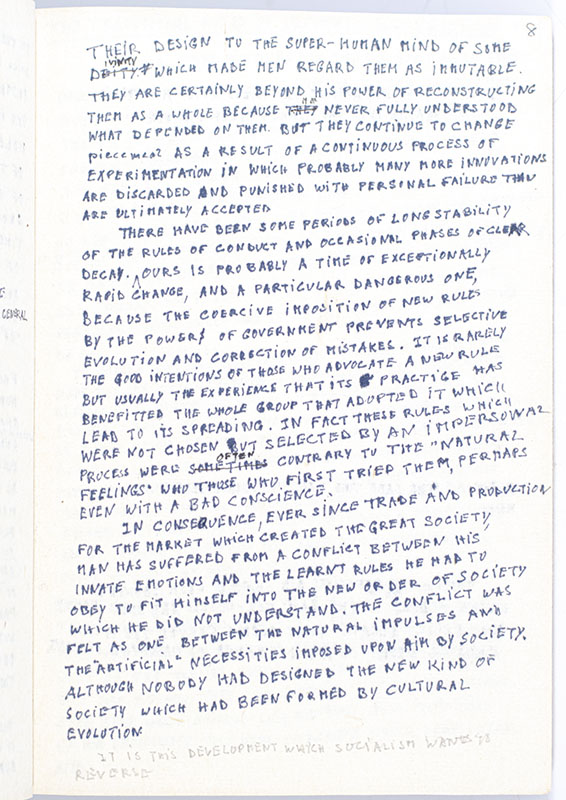 8
THEIR DESIGN TO THE SUPER-HUMAN MIND OF SOME
DIVINITY WHICH MADE MEN REGARD THEM AS IMMUTABLE.
THEY ARE CERTAINLY BEYOND HIS POWER OF RECONSTRUCTING
THEM AS A WHOLE BECAUSE THEY HE NEVER FULLY UNDERSTOOD
WHAT DEPENDED ON THEM. BUT THEY CONTINUE TO CHANGE
piecemeal AS A RESULT OF A CONTINUOUS PROCESS OF
EXPERIMENTATION IN WHICH PROBABLY MANY MORE INNOVATIONS
ARE DISCARDED AND PUNISHED WITH PERSONAL FAILURE THAN
ARE ULTIMATELY ACCEPTED
THERE HAVE BEEN SOME PERIODS OF LONG STABILITY
OF THE RULES OF CONDUCT AND OCCASIONAL PHASES OF CLEAR
DECAY. OURS IS PROBABLY A TIME OF EXCEPTIONALLY
RAPID CHANGE, AND A PARTICULAR DANGEROUS ONE,
BECAUSE THE COERCIVE IMPOSITION OF NEW RULES
BY THE POWERS OF GOVERNMENT PREVENTS SELECTIVE
EVOLUTION AND CORRECTION OF MISTAKES. IT IS RARELY
THE GOOD INTENTIONS OF THOSE WHO ADVOCATE A NEW RULE
BUT USUALLY THE EXPERIENCE THAT ITS PRACTICE HAS
BENEFITTED THE WHOLE GROUP THAT ADOPTED IT WHICH
LEAD TO ITS SPREADING. IN FACT THESE RULES WHICH
WERE NOT CHOSEN BUT SELECTED BY AN IMPERSONAL
PROCESS WERE SOMETIMES OFTEN CONTRARY TO THE "NATURAL
FEELINGS" WHO THOSE WHO FIRST TRIED THEM, PERHAPS
EVEN WITH A BAD CONSCIENCE.
IN CONSEQUENCE, EVER SINCE TRADE AND PRODUCTION
FOR THE MARKET WHICH CREATED THE GREAT SOCIETY,
MAN HAS SUFFERED FROM A CONFLICT BETWEEN HIS
INNATE EMOTIONS AND THE LEARNT RULES HE HAD TO
OBEY TO FIT HIMSELF INTO THE NEW ORDER OF SOCIETY
WHICH HE DID NOT UNDERSTAND. THE CONFLICT WAS
FELT AS ONE BETWEEN THE NATURAL IMPULSES AND
THE "ARTIFICIAL" NECESSITIES IMPOSED UPON HIM BY SOCIETY.
ALTHOUGH NOBODY HAD DESIGNED THE NEW KIND OF
SOCIETY WHICH HAD BEEN FORMED BY CULTURAL
EVOLUTION
IT IS THIS DEVELOPMENT WHICH SOCIALISM WANTS TO
REVERSE